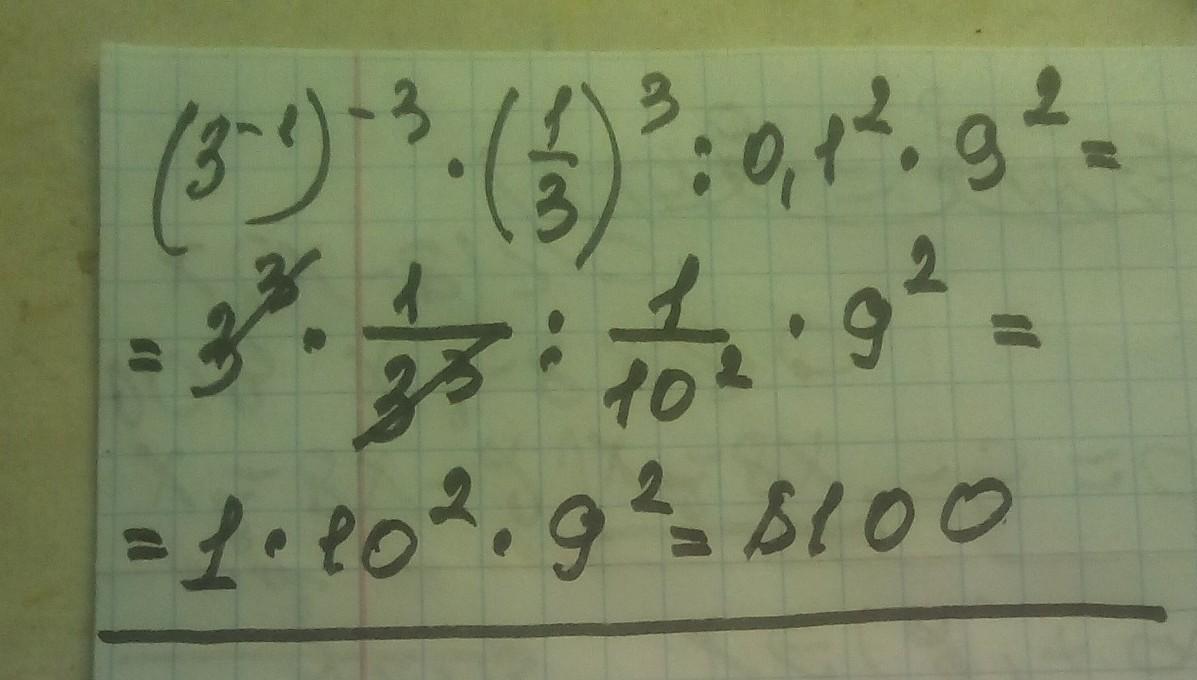 (3⁻¹)⁻³ · (1/3)³ : 0,1² · 9² =
= 3³ · 1/3³ : 1/10² · 9² =
= 1 · 10² · 9² = 8100